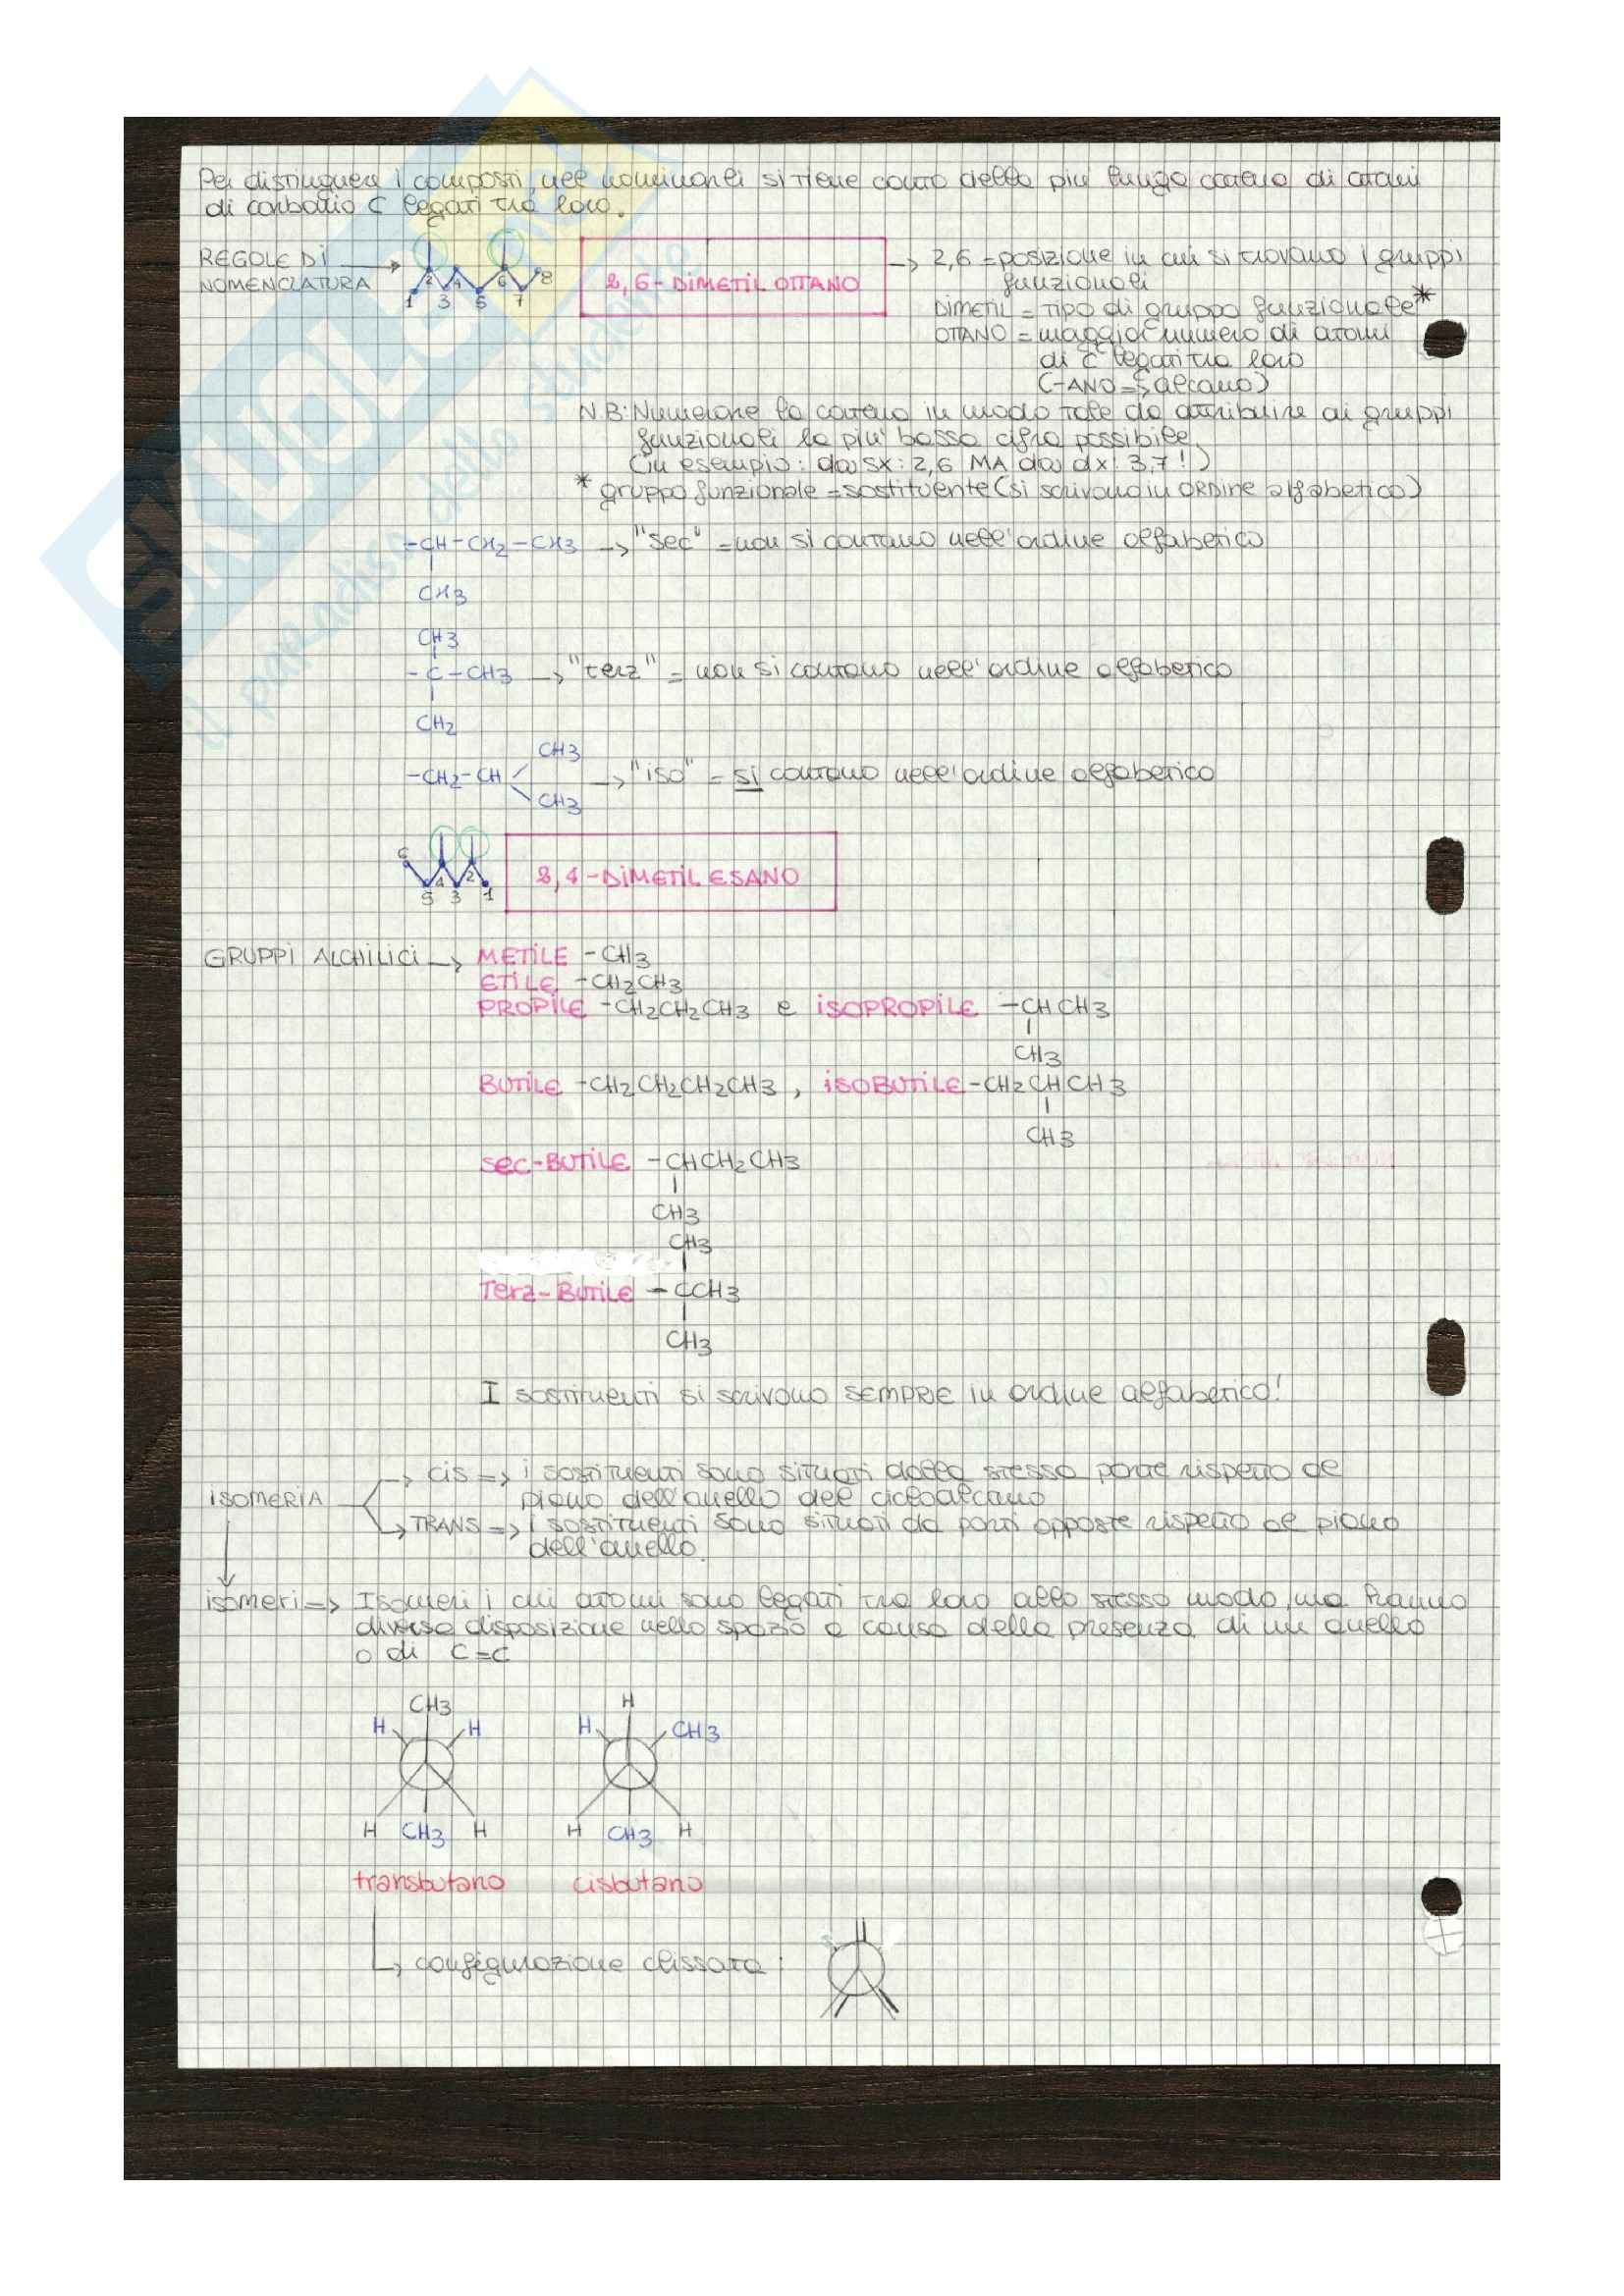 SKUOLA
il paradiso dello studente
Per distinguere i composti, nel nominarli si tiene conto della più lunga catena di atomi
di carbonio C legati tra loro.
REGOLE DI
NOMENCLATURA
1 2 3 4 5 6 7 8
2,6-DIMETIL OTTANO
→ 2,6 = posizione in cui si trovano i gruppi
funzionali
DIMETIL = tipo di gruppo funzionale*
OTTANO = maggior numero di atomi
di C legati tra loro
(-ANO => alcano)
N.B: Numerare la catena in modo tale da attribuire ai gruppi
funzionali la più bassa cifra possibile
(in esempio: da sx: 2,6 MA da dx: 3,7!)
* gruppo funzionale = sostituente (si scrivono in ORDINE alfabetico)
-CH-CH2-CH3 → "sec" = non si contano nell'ordine alfabetico
CH3
CH3
-C-CH3 → "terz" = non si contano nell'ordine alfabetico
CH2
CH3
-CH2-CH → "iso" = si contano nell'ordine alfabetico
CH3
6 5 4 3 2 1
2,4-DIMETIL ESANO
GRUPPI ALCHILICI → METILE -CH3
ETILE -CH2CH3
PROPILE -CH2CH2CH3 e ISOPROPILE -CHCH3
CH3
BUTILE -CH2CH2CH2CH3, ISOBUTILE -CH2CHCH3
CH3
sec-BUTILE -CHCH2CH3
CH3
CH3
Terz-BUTILE -CCH3
CH3
I sostituenti si scrivono SEMPRE in ordine alfabetico!
→ cis => i sostituenti sono situati dalla stessa parte rispetto al
ISOMERIA
piano dell'anello del cicloalcano
→ TRANS => i sostituenti sono situati da parti opposte rispetto al piano
dell'anello.
isomeri => Isomeri i cui atomi sono legati tra loro allo stesso modo, ma hanno
diversa disposizione nello spazio a causa della presenza di un anello
o di C=C
CH3 H
H H H CH3
H CH3 H H CH3 H
transbutano cisbutano
→ configurazione eclissata: